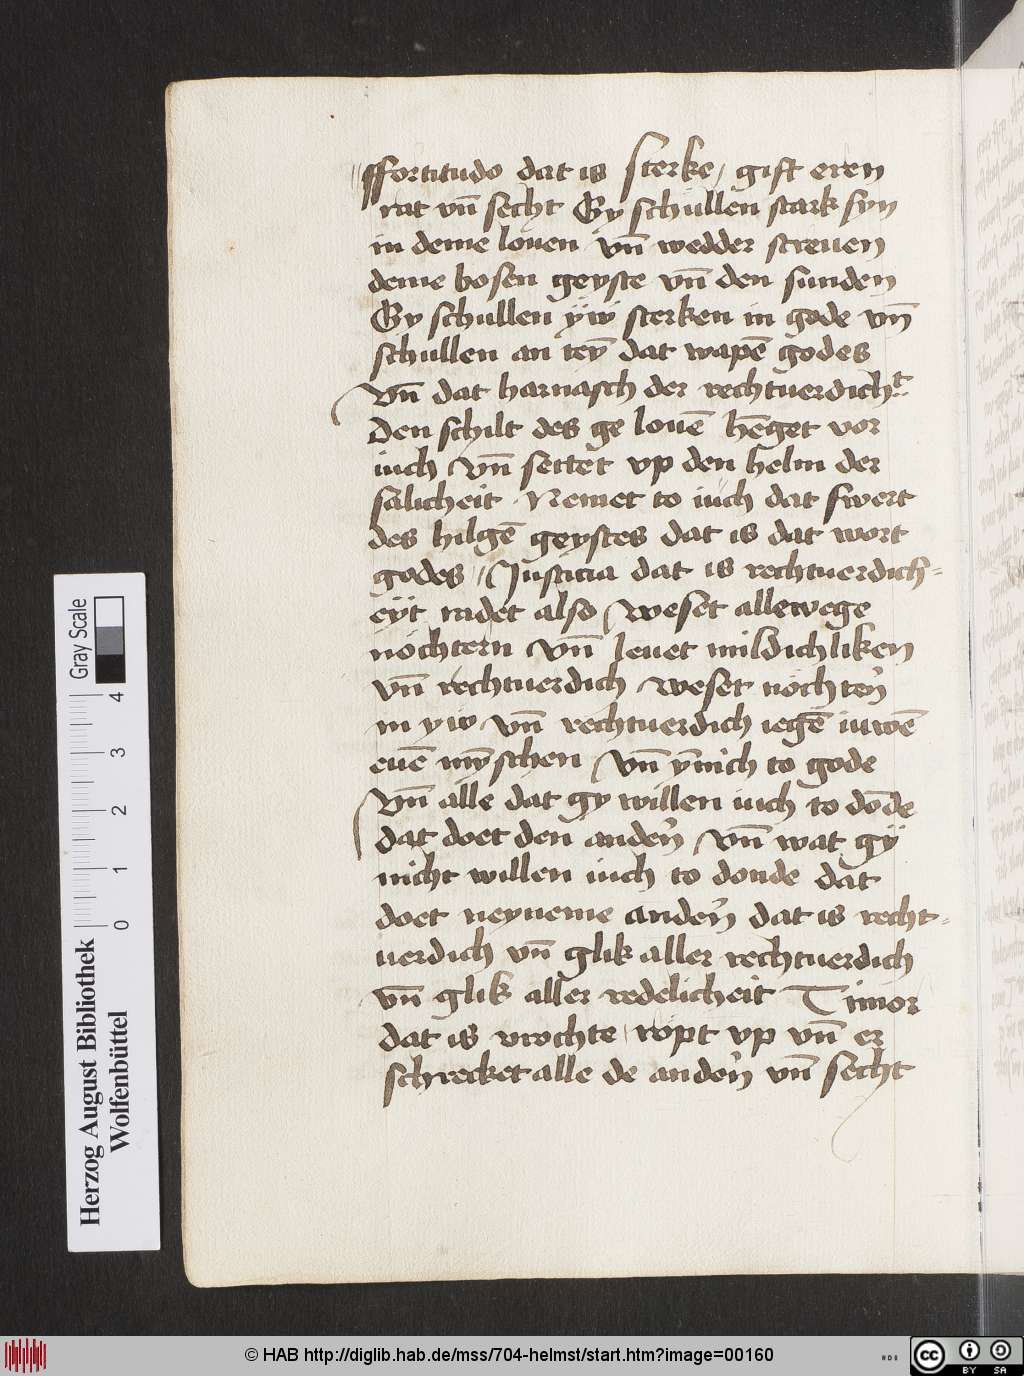 ffortitudo dat is sterke / gift eren
rat vn̄ secht Gy schullen stark syn
in deme louen vn̄ wedder streuen
deme bosen geyste vn̄ den sunden
Gy schullen yw sterken in gode vn̄
schullen an teȳ dat wapē godes
vn̄ dat harnasch der rechtuerdichᵗ
Den schilt des ge louē hēget vor
iuch vn̄ settet vp den helm der
salicheit · Nemet to iuch dat swert
des hilgē geystes dat is dat wort
godes // Justicia dat is rechtuerdich=
eÿt radet also / weset allewege
nochtern vn̄ leuet mildichliken
vn̄ rechtuerdich weset nochter̄n
in yw vn̄ rechtuerdich iegē iuwē
euē mȳschen / vn̄ ȳnich to gode
vn̄ alle dat gy willen iuch to dōde
dat doet den ander̄n / vn̄ wat gÿ
nicht willen iuch to donde dat
doet neyneme ander̄n dat is recht=
uerdich vn̄ glik aller rechtuerdich
vn̄ glik aller redelicheit Timor
dat is vrochte / ropt vp vn̄ er
schrecket alle de ander̄n vn̄ secht
Herzog August Bibliothek
Wolfenbüttel
Gray Scale
0 1 2 3 4
© HAB http://diglib.hab.de/mss/704-helmst/start.htm?image=00160
HAB
cc BY SA